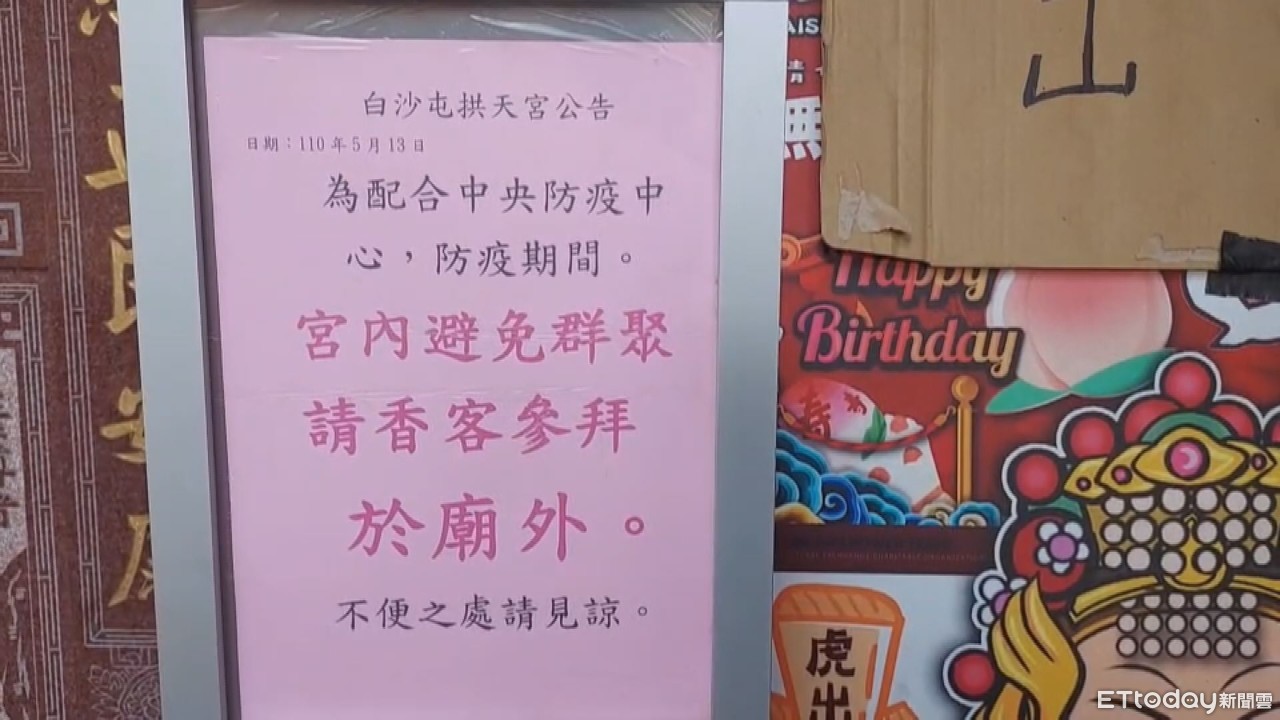 白沙屯拱天宮公告
日期：110年5月13日
為配合中央防疫中
心，防疫期間。
宮內避免群聚
請香客參拜
於廟外。
不便之處請見諒。
出
無
Happy
Birthday
壽
虎
出
ETtoday新聞雲